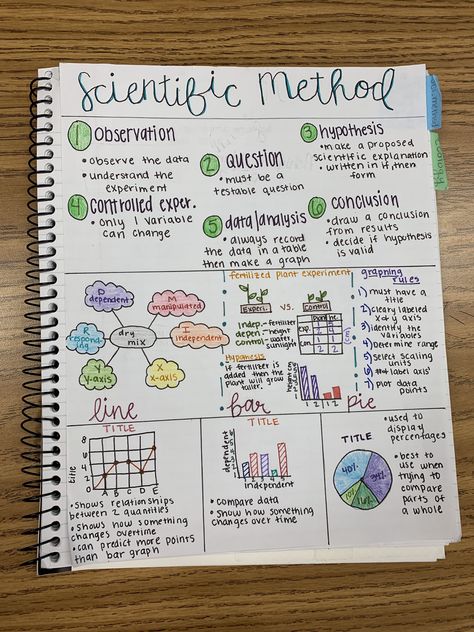 Scientific Method
① observation
• observe the data
• understand the
experiment
② question
• must be a
testable question
③ hypothesis
• make a proposed
scientific explanation
• written in if then
form
④ controlled exper.
• only 1 variable
can change
⑤ data/analysis
• always record
the data in a table
then make a graph
⑥ conclusion
• draw a conclusion
from results
• decide if hypothesis
is valid
D
dependent
M
manipulated
R
responding
dry
mix
I
independent
Y
y-axis
X
x-axis
fertilized plant experiment
Experi. vs. Control
indep. - fertilizer
depen. - height
control - water,
sunlight
Hypothesis
if fertilizer is
added then the
plant will grow
taller.
1 2 1 2
graphing
rules
1) must have a
title
2) clearly labeled
x + y axis
3) identify the
variables
4) determine range
5) select scaling
units
6) # label axis'
7) plot data
points
line
TITLE
title
8
6
4
2
0
A B C D E
• shows relationships
between 2 quantities
• shows how something
changes overtime
• can predict more points
than bar graph
bar
TITLE
dependent
1 2 3 4 5
independent
• compare data
• show how something
changes over time
pie
TITLE
40%
• used to
display
percentages
• best to
use when
trying to
compare
parts of
a whole